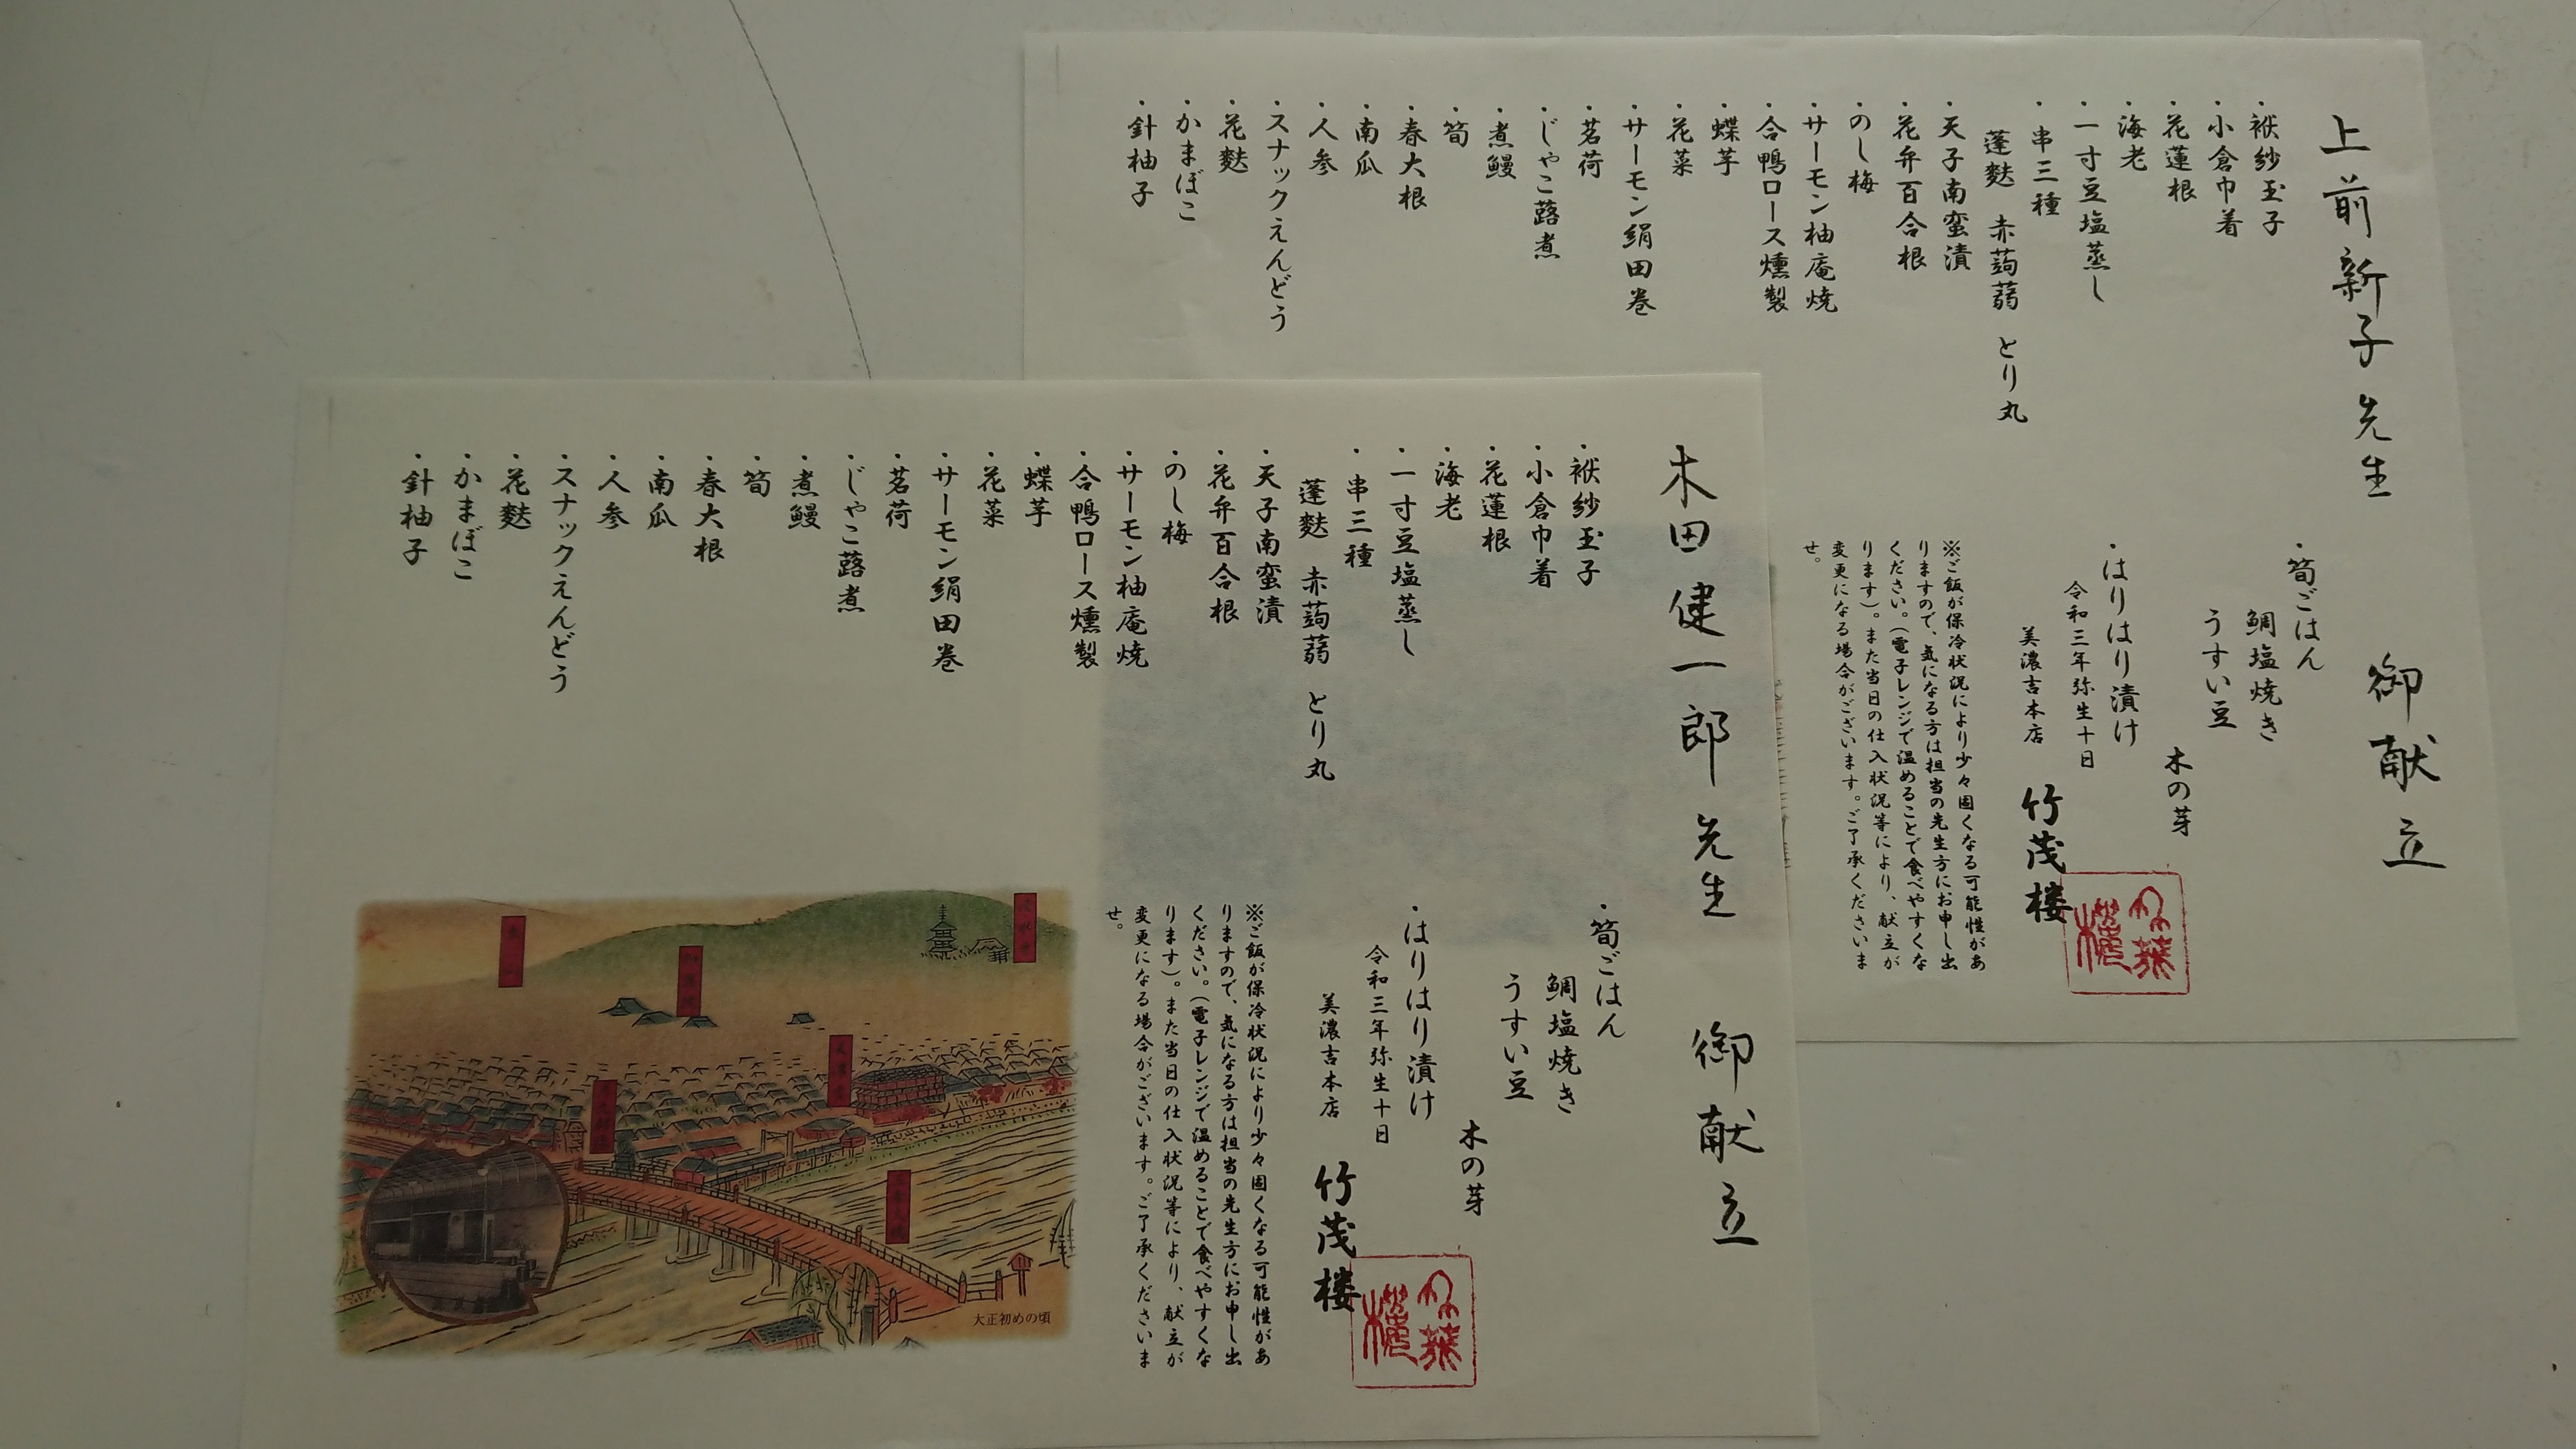 上前新子先生　御献立
・袱紗玉子
・小倉巾着
・花蓮根
・海老
・一寸豆塩蒸し
・串三種
蓬麩　赤蒟蒻　とり丸
・天子南蛮漬
・花弁百合根
・のし梅
・サーモン柚庵焼
・合鴨ロース燻製
・蝶芋
・花菜
・サーモン絹田巻
・茗荷
・じゃこ蕗煮
・煮鰻
・筍
・春大根
・南瓜
・人参
・スナックえんどう
・花麩
・かまぼこ
・針柚子
・筍ごはん
鯛塩焼き
うすい豆
木の芽
・はりはり漬け
令和三年弥生十日
美濃吉本店　竹茂楼
※ご飯が保冷状況により少々固くなる可能性があ
りますので、気になる方は担当の先生方にお申し出
ください。（電子レンジで温めることで食べやすくな
ります）。また当日の仕入状況等により、献立が
変更になる場合がございます。ご了承くださいま
せ。
木田健一郎先生　御献立
・袱紗玉子
・小倉巾着
・花蓮根
・海老
・一寸豆塩蒸し
・串三種
蓬麩　赤蒟蒻　とり丸
・天子南蛮漬
・花弁百合根
・のし梅
・サーモン柚庵焼
・合鴨ロース燻製
・蝶芋
・花菜
・サーモン絹田巻
・茗荷
・じゃこ蕗煮
・煮鰻
・筍
・春大根
・南瓜
・人参
・スナックえんどう
・花麩
・かまぼこ
・針柚子
・筍ごはん
鯛塩焼き
うすい豆
木の芽
・はりはり漬け
令和三年弥生十日
美濃吉本店　竹茂楼
※ご飯が保冷状況により少々固くなる可能性があ
りますので、気になる方は担当の先生方にお申し出
ください。（電子レンジで温めることで食べやすくな
ります）。また当日の仕入状況等により、献立が
変更になる場合がございます。ご了承くださいま
せ。
大正初めの頃